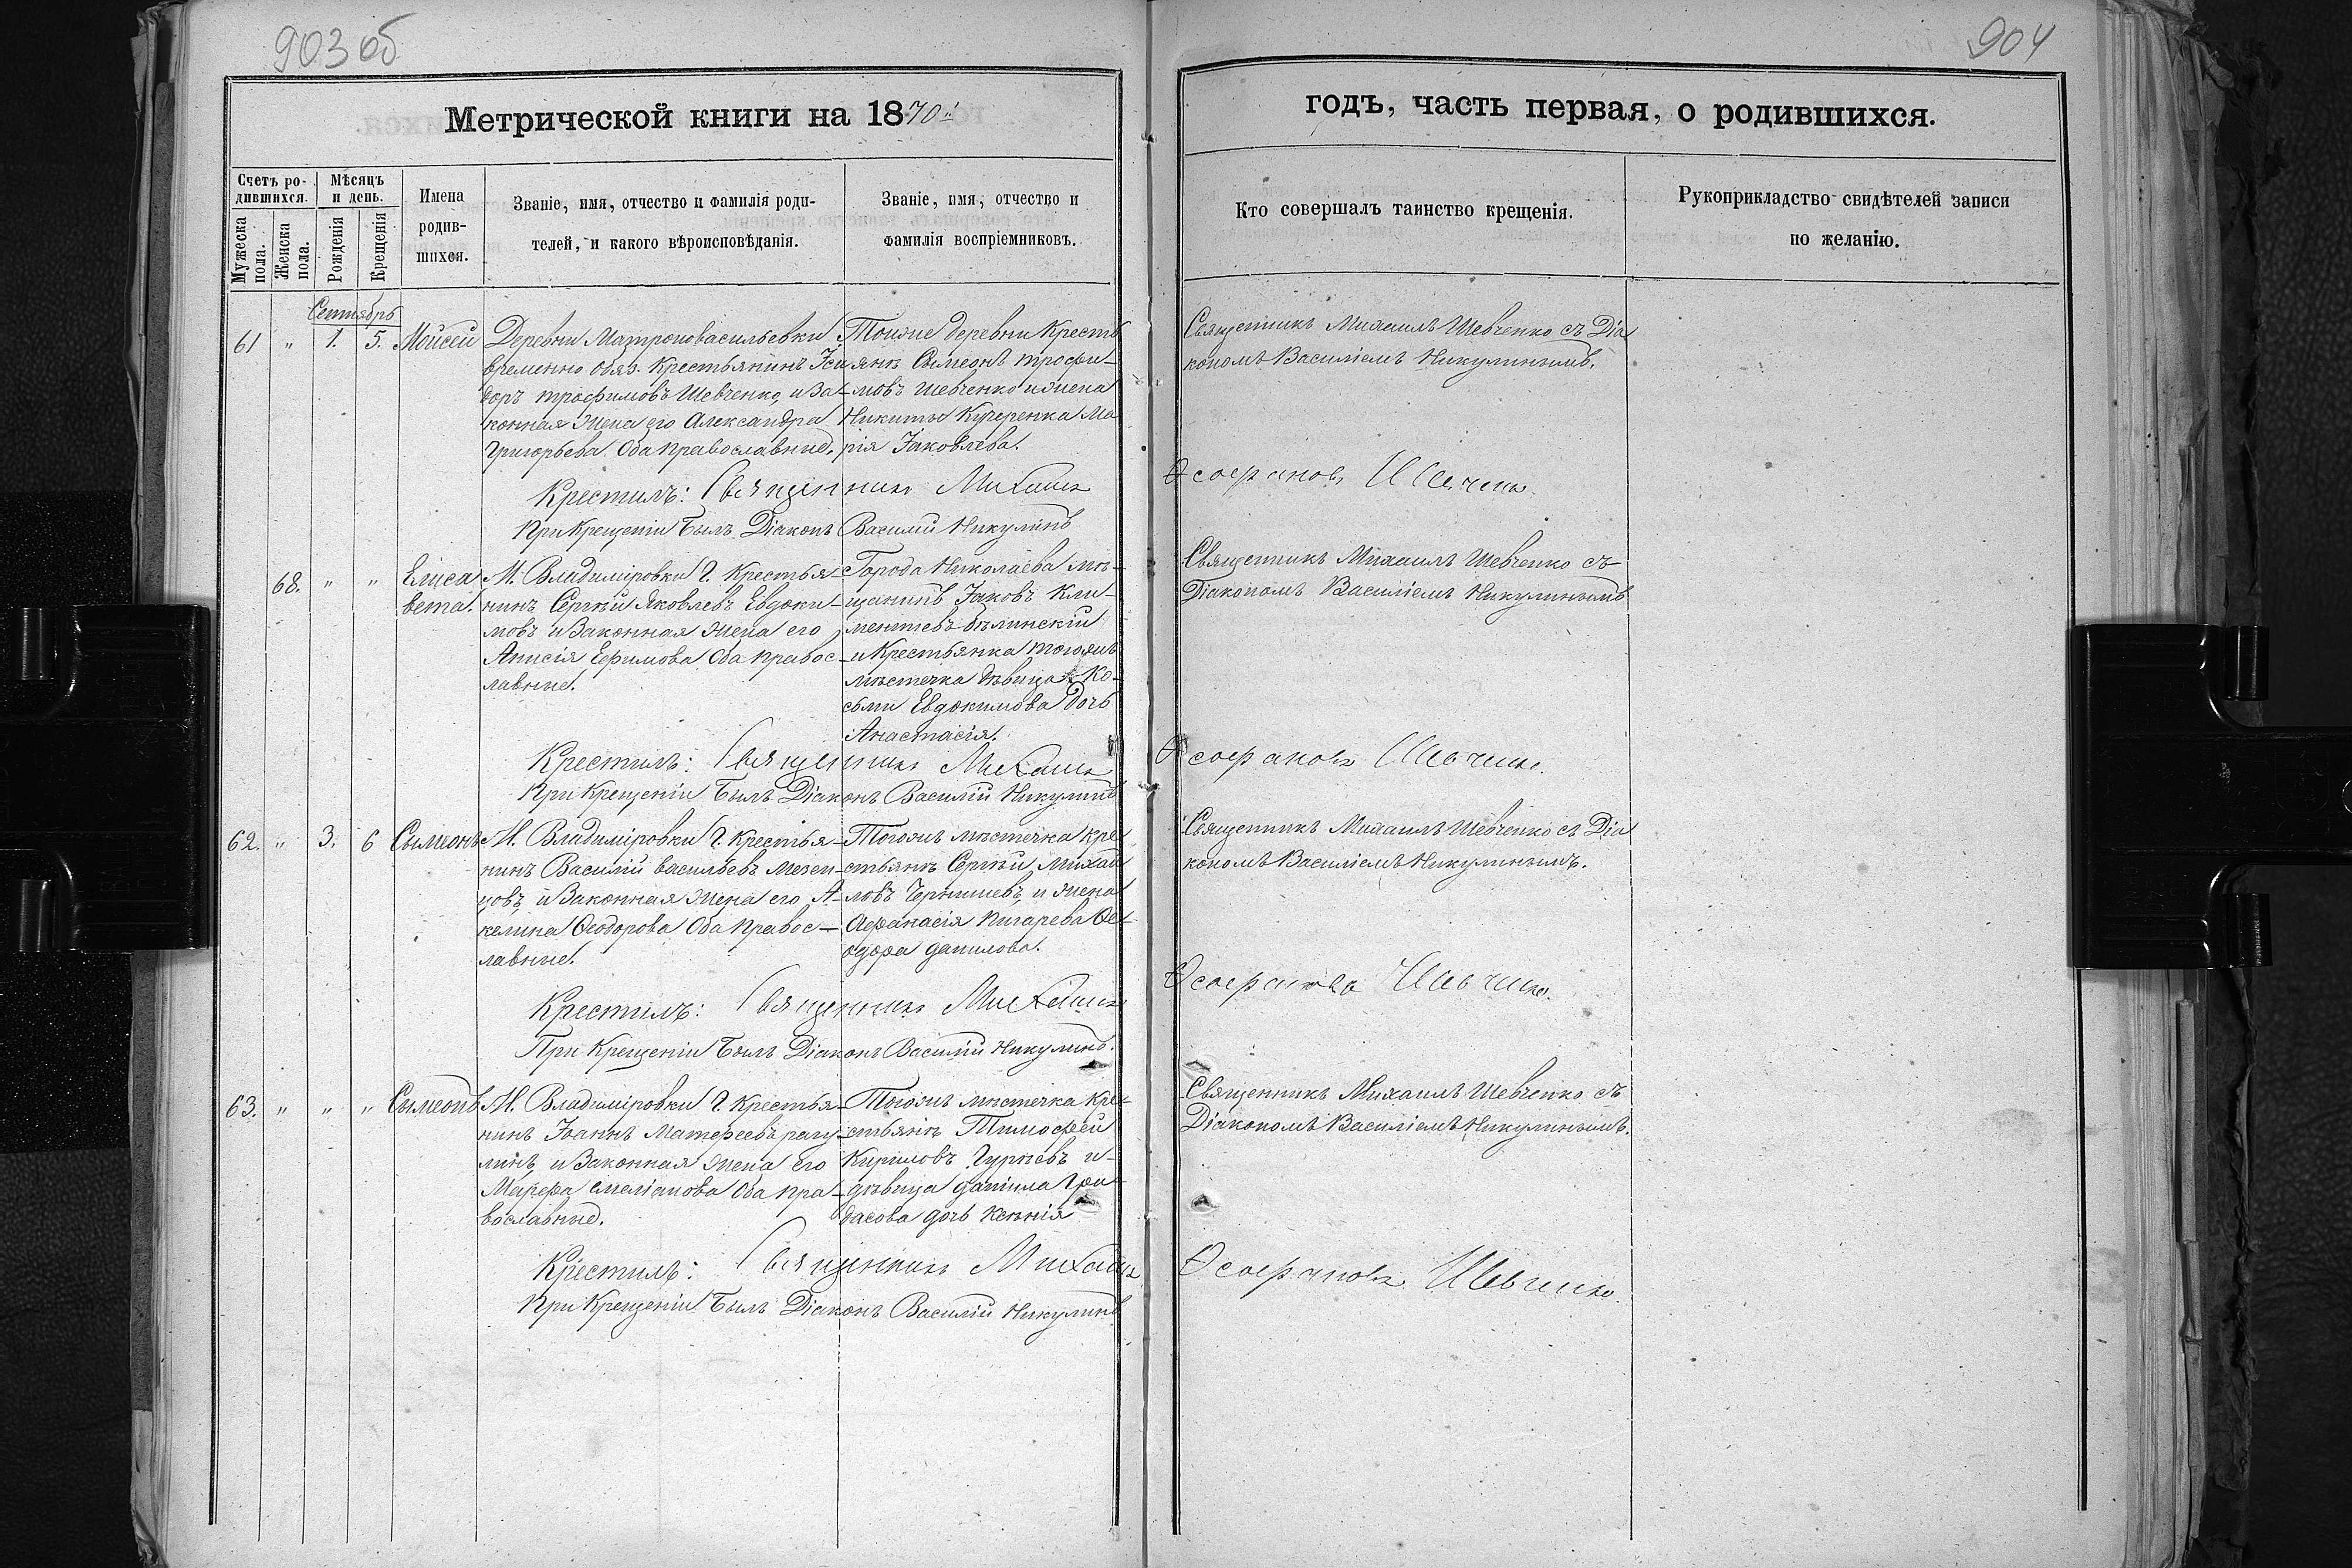 903 об
904
Метрической книги на 1870й
годъ, часть первая, о родившихся.
Счетъ ро-
дившихся.
Мѣсяцъ
и день.
Мужеска
пола.
Женска
пола.
Рожденія
Крещенія
Имена
родив-
шихся.
Званіе, имя, отчество и фамилія роди-
телей, и какого вѣроисповѣданія.
Званіе, имя, отчество и
фамилія воспріемниковъ.
Кто совершалъ таинство крещенія.
Рукоприкладство свидѣтелей записи
по желанію.
Сентябрь
61 " 1. 5. Мойсей
Деревни Матроновасильевки
временно обяз. Крестьянинъ Іси
доръ трофимовъ Шевченко, и за-
конная жена его Александра
Григорьева Оба православные.
Тоиже деревни Кресть
янъ Сымеонъ трофи-
мовъ Шевченко и жена
Никиты Кучеренка Ма
рія Іаковлева.
Священникъ Михаилъ Шевченко съ Діа
кономъ Василіемъ Никулинымъ.
Крестилъ: Священникъ Михаилъ
Ѳеофановъ Шевченко.
При Крещеніи былъ Діаконъ Василій Никулинъ
68. " " Елиса
вета.
М. Владиміровки Г. Крестья-
нинъ Сергѣй Яковлевъ Евдоки-
мовъ и Законная жена его
Анисія Ефимова Оба правос-
лавные.
Города Николаева мѣ-
щанинъ Іаковъ Кли-
ментьевъ Бѣлинскій
и Крестьянка тогожъ
мѣстечка дѣвица Ко-
сьми Евдокимова дочь
Анастасія.
Священникъ Михаилъ Шевченко съ
Діакономъ Василіемъ Никулинымъ
Крестилъ: Священникъ Михаилъ
Ѳеофановъ Шевченко.
При Крещеніи былъ Діаконъ Василій Никулинъ
62. " 3. 6 Сымеонъ
М. Владиміровки Г. Крестья-
нинъ Василій васильевъ Мезен-
цовъ, и Законная жена его А-
келина Ѳеодорова Оба правос-
лавные.
Тогожъ мѣстечка кре
стьянъ Сергѣй Михаи
ловъ Чернышевъ, и жена
Афанасія Пигарева Ѳе-
одора данилова.
Священникъ Михаилъ Шевченко съ Діа
кономъ Василіемъ Никулинымъ.
Крестилъ: Священникъ Михаилъ
Ѳеофановъ Шевченко.
При Крещеніи былъ Діаконъ Василій Никулинъ.
63. " " " Сымеонъ
М. Владиміровки Г. Крестья-
нинъ Іоаннъ Матфеевъ рагу-
линъ, и Законная жена его
Марфа емеліанова Оба пра-
вославные.
Тогожъ мѣстечка Кре-
стьянъ Тимофей
Кириловъ Гурьевъ и
дѣвица данила Гри
басова дочь Ксенія
Священникъ Михаилъ Шевченко съ
Діакономъ Василіемъ Никулинымъ.
Крестилъ: Священникъ Михаилъ
Ѳеофановъ Шевченко.
При Крещеніи былъ Діаконъ Василій Никулинъ